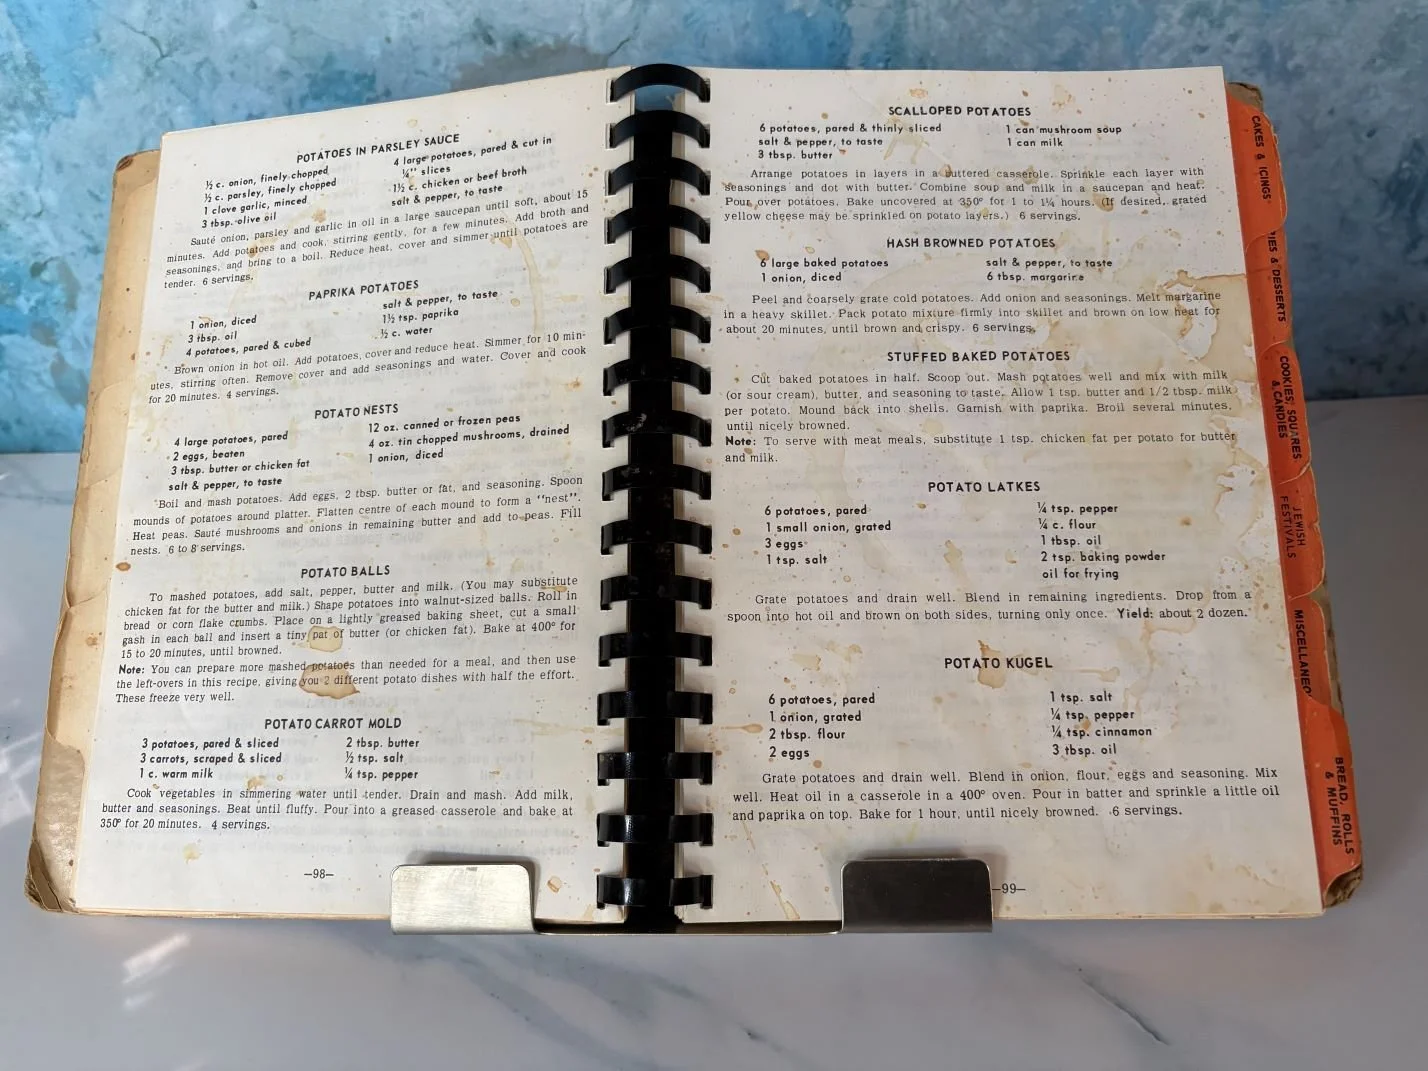 POTATOES IN PARSLEY SAUCE
½ c. onion, finely chopped
½ c. parsley, finely chopped
1 clove garlic, minced
3 tbsp. olive oil
4 large potatoes, pared & cut in
¼" slices
1½ c. chicken or beef broth
salt & pepper, to taste
Sauté onion, parsley and garlic in oil in a large saucepan until soft, about 15
minutes. Add potatoes and cook, stirring gently, for a few minutes. Add broth and
seasonings, and bring to a boil. Reduce heat, cover and simmer until potatoes are
tender. 6 servings.
PAPRIKA POTATOES
1 onion, diced
3 tbsp. oil
4 potatoes, pared & cubed
salt & pepper, to taste
1½ tsp. paprika
½ c. water
Brown onion in hot oil. Add potatoes, cover and reduce heat. Simmer for 10 min-
utes, stirring often. Remove cover and add seasonings and water. Cover and cook
for 20 minutes. 4 servings.
POTATO NESTS
4 large potatoes, pared
2 eggs, beaten
3 tbsp. butter or chicken fat
salt & pepper, to taste
12 oz. canned or frozen peas
4 oz. tin chopped mushrooms, drained
1 onion, diced
Boil and mash potatoes. Add eggs, 2 tbsp. butter or fat, and seasoning. Spoon
mounds of potatoes around platter. Flatten centre of each mound to form a "nest".
Heat peas. Sauté mushrooms and onions in remaining butter and add to peas. Fill
nests. 6 to 8 servings.
POTATO BALLS
To mashed potatoes, add salt, pepper, butter and milk. (You may substitute
chicken fat for the butter and milk.) Shape potatoes into walnut-sized balls. Roll in
bread or corn flake crumbs. Place on a lightly greased baking sheet, cut a small
gash in each ball and insert a tiny pat of butter (or chicken fat). Bake at 400° for
15 to 20 minutes, until browned.
Note: You can prepare more mashed potatoes than needed for a meal, and then use
the left-overs in this recipe, giving you 2 different potato dishes with half the effort.
These freeze very well.
POTATO CARROT MOLD
3 potatoes, pared & sliced
3 carrots, scraped & sliced
1 c. warm milk
2 tbsp. butter
½ tsp. salt
¼ tsp. pepper
Cook vegetables in simmering water until tender. Drain and mash. Add milk,
butter and seasonings. Beat until fluffy. Pour into a greased casserole and bake at
350° for 20 minutes. 4 servings.
—98—
SCALLOPED POTATOES
6 potatoes, pared & thinly sliced
salt & pepper, to taste
3 tbsp. butter
1 can mushroom soup
1 can milk
Arrange potatoes in layers in a buttered casserole. Sprinkle each layer with
seasonings and dot with butter. Combine soup and milk in a saucepan and heat.
Pour over potatoes. Bake uncovered at 350° for 1 to 1¼ hours. (If desired, grated
yellow cheese may be sprinkled on potato layers.) 6 servings.
HASH BROWNED POTATOES
6 large baked potatoes
1 onion, diced
salt & pepper, to taste
6 tbsp. margarine
Peel and coarsely grate cold potatoes. Add onion and seasonings. Melt margarine
in a heavy skillet. Pack potato mixture firmly into skillet and brown on low heat for
about 20 minutes, until brown and crispy. 6 servings.
STUFFED BAKED POTATOES
Cut baked potatoes in half. Scoop out. Mash potatoes well and mix with milk
(or sour cream), butter, and seasoning to taste. Allow 1 tsp. butter and 1/2 tbsp. milk
per potato. Mound back into shells. Garnish with paprika. Broil several minutes,
until nicely browned.
Note: To serve with meat meals, substitute 1 tsp. chicken fat per potato for butter
and milk.
POTATO LATKES
6 potatoes, pared
1 small onion, grated
3 eggs
1 tsp. salt
¼ tsp. pepper
¼ c. flour
1 tbsp. oil
2 tsp. baking powder
oil for frying
Grate potatoes and drain well. Blend in remaining ingredients. Drop from a
spoon into hot oil and brown on both sides, turning only once. Yield: about 2 dozen.
POTATO KUGEL
6 potatoes, pared
1 onion, grated
2 tbsp. flour
2 eggs
1 tsp. salt
¼ tsp. pepper
¼ tsp. cinnamon
3 tbsp. oil
Grate potatoes and drain well. Blend in onion, flour, eggs and seasoning. Mix
well. Heat oil in a casserole in a 400° oven. Pour in batter and sprinkle a little oil
and paprika on top. Bake for 1 hour, until nicely browned. 6 servings.
—99—
CAKES & ICINGS
IES & DESSERTS
COOKIES, SQUARES
& CANDIES
JEWISH
FESTIVALS
MISCELLANEO
BREAD, ROLLS
& MUFFINS